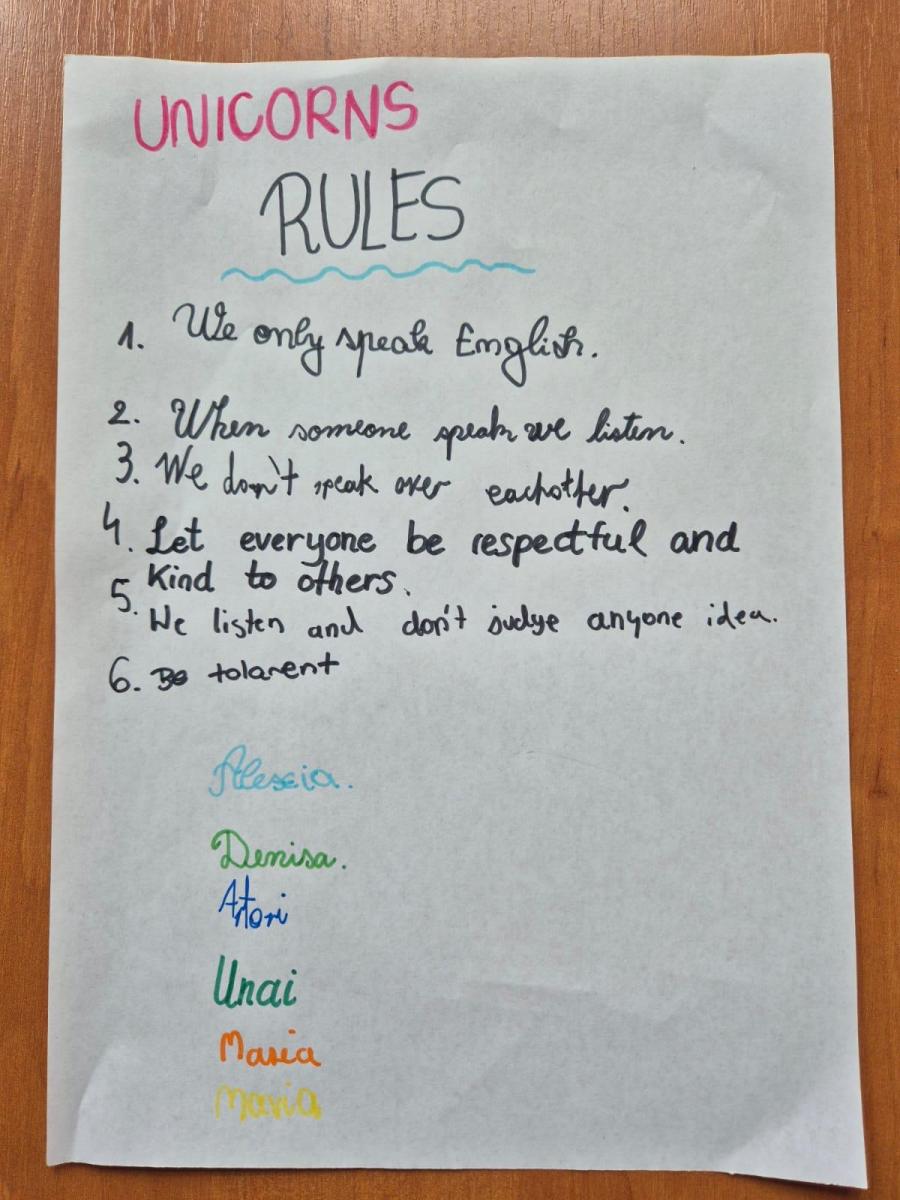 UNICORNS
RULES
1. We only speak English.
2. When someone speak we listen.
3. We don't speak over eachother.
4. Let everyone be respectful and
kind to others.
5. We listen and don't judge anyone idea.
6. Be tolarent
Alessia.
Denisa.
Unai
Maria
Maria